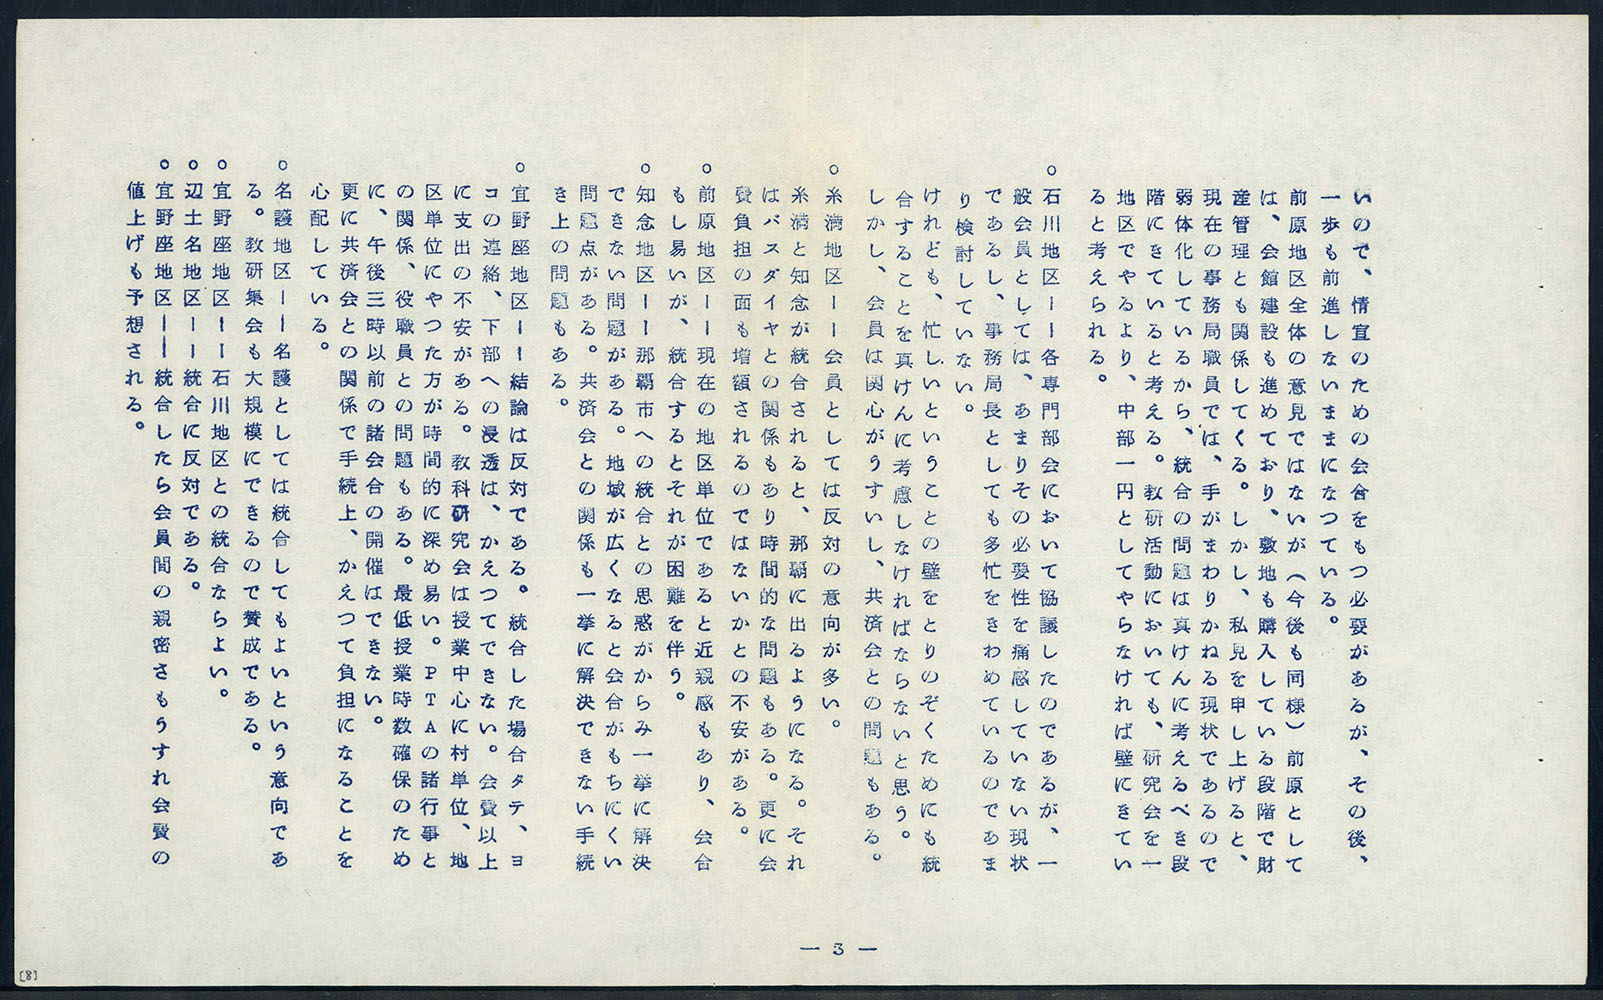 いので、情宜のための会合をもつ必要があるが、その後、
一歩も前進しないままになつている。
前原地区全体の意見ではないが（今後も同様）前原として
は、会館建設も進めており、敷地も購入している段階で財
産管理とも関係してくる。しかし、私見を申し上げると、
現在の事務局職員では、手がまわりかねる現状であるので
弱体化しているから、統合の問題は真けんに考えるべき段
階にきていると考える。教研活動においても、研究会を一
地区でやるより、中部一円としてやらなければ壁にきてい
ると考えられる。
○石川地区ーー各専門部会において協議したのであるが、一
般会員としては、あまりその必要性を痛感していない現状
であるし、事務局長としても多忙をきわめているのであま
り検討していない。
けれども、忙しいということの壁をとりのぞくためにも統
合することを真けんに考慮しなければならないと思う。
しかし、会員は関心がうすいし、共済会との問題もある。
○糸満地区ーー会員としては反対の意向が多い。
糸満と知念が統合されると、那覇に出るようになる。それ
はバスダイヤとの関係もあり時間的な問題もある。更に会
費負担の面も増額されるのではないかとの不安がある。
○前原地区ーー現在の地区単位であると近親感もあり、会合
もし易いが、統合するとそれが困難を伴う。
○知念地区ーー那覇市への統合との思惑がからみ一挙に解決
できない問題がある。地域が広くなると会合がもちにくい
問題点がある。共済会との関係も一挙に解決できない手続
き上の問題もある。
○宜野座地区ーー結論は反対である。統合した場合タテ、ヨ
コの連絡、下部への浸透は、かえつてできない。会費以上
に支出の不安がある。教科研究会は授業中心に村単位、地
区単位にやつた方が時間的に深め易い。PTAの諸行事と
の関係、役職員との問題もある。最低授業時数確保のため
に、午後三時以前の諸会合の開催はできない。
更に共済会との関係で手続上、かえつて負担になることを
心配している。
○名護地区ーー名護としては統合してもよいという意向であ
る。教研集会も大規模にできるので賛成である。
○宜野座地区ーー石川地区との統合ならよい。
○辺土名地区ーー統合に反対である。
○宜野座地区ーー統合したら会員間の親密さもうすれ会費の
値上げも予想される。
— 3 —
[8]